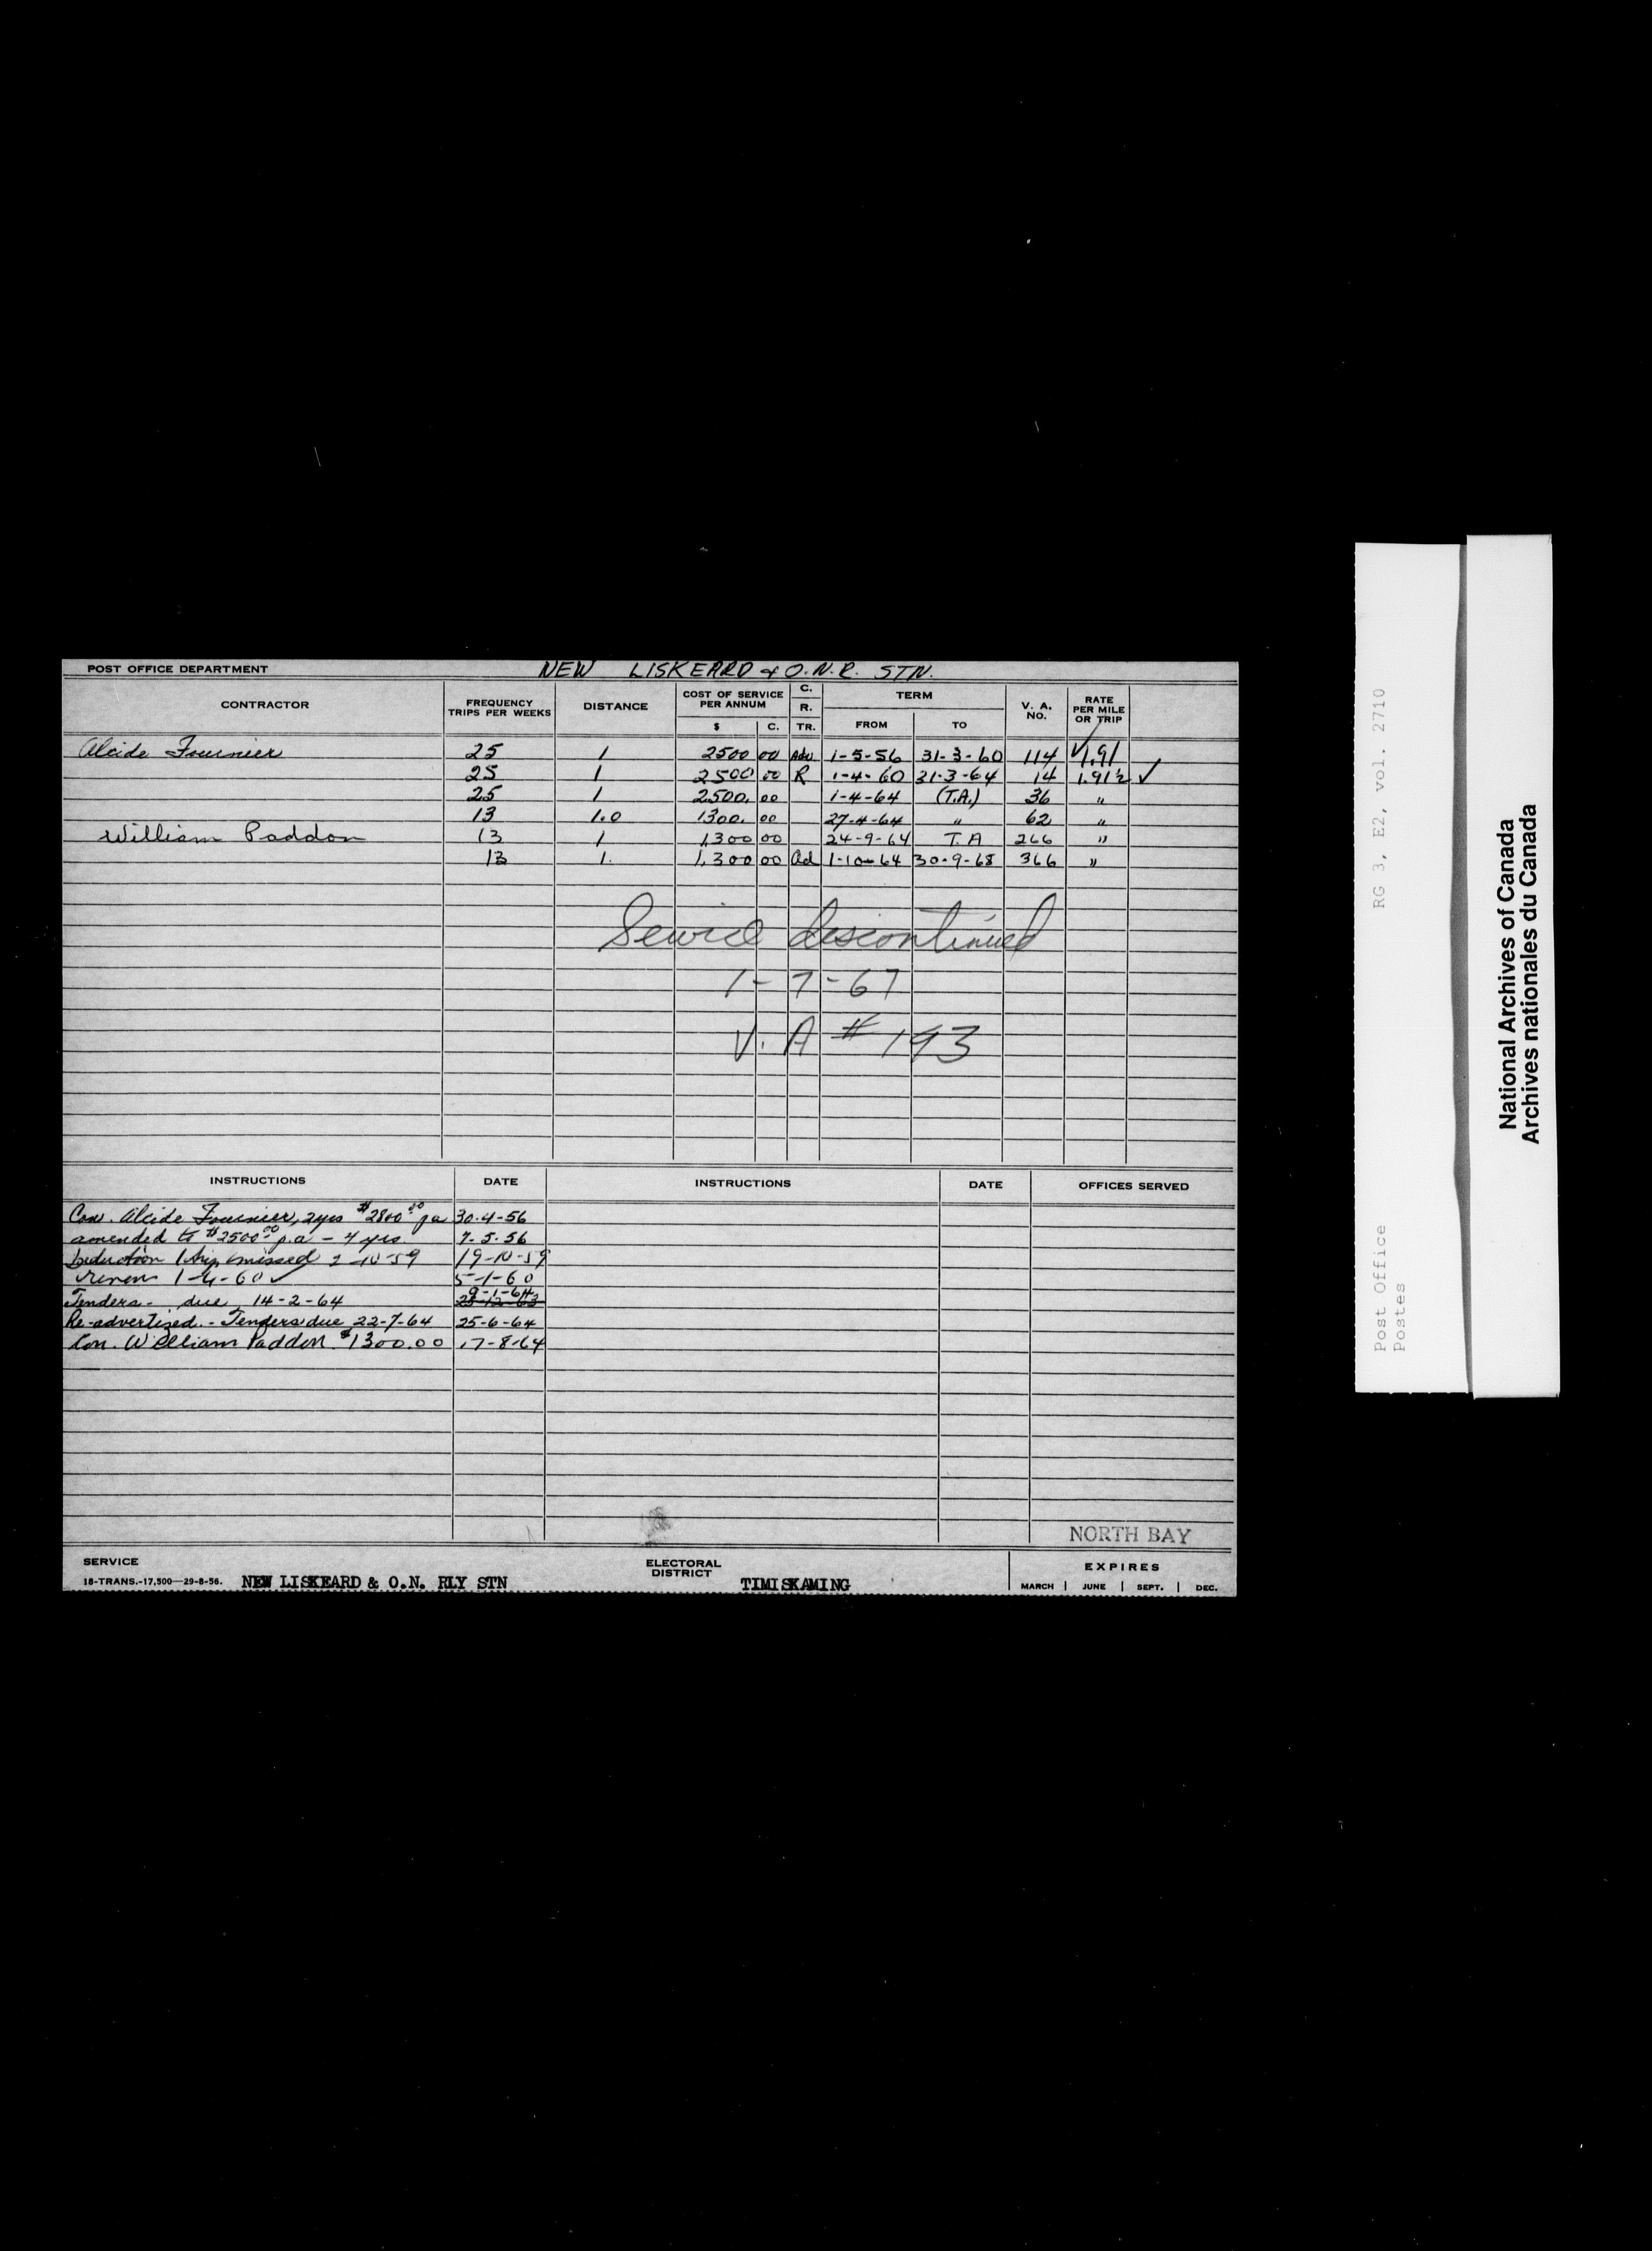 POST OFFICE DEPARTMENT NEW LISKEARD & O.N.R. STN.
CONTRACTOR FREQUENCY TRIPS PER WEEKS DISTANCE COST OF SERVICE PER ANNUM $ C. C. R. TR. TERM FROM TO V. A. NO. RATE PER MILE OR TRIP
Alcide Fournier 25 1 2500 00 Adv 1-5-56 31-3-60 114 √1.91
25 1 2500 00 R 1-4-60 31-3-64 14 1.91½ ✓
25 1 2500. 00 1-4-64 (T.A.) 36 "
13 1.0 1300. 00 27-4-64 " 62 "
William Paddon 13 1 1300 00 24-9-64 T.A 266 "
13 1. 1,300 00 Ad 1-10-64 30-9-68 366 "
Service discontinued
1-7-67
V.A # 193
INSTRUCTIONS DATE INSTRUCTIONS DATE OFFICES SERVED
Con. Alcide Fournier, 2yrs $2800.00 pa 30-4-56
amended to $2500.00 p.a - 4 yrs 7-5-56
Deduction 1 trip missed 2-10-59 19-10-59
renew 1-4-60 ✓ 5-1-60
Tenders - due 14-2-64 9-1-64 23-12-63
Re-advertized. - Tenders due 22-7-64 25-6-64
Con. William Paddon $1300.00 17-8-64
NORTH BAY
SERVICE ELECTORAL DISTRICT EXPIRES
18-TRANS.-17,500—29-8-56. NEW LISKEARD & O.N. RLY STN TIMISKAMING MARCH | JUNE | SEPT. | DEC.
Post Office RG 3, E2, vol. 2710
Postes
National Archives of Canada
Archives nationales du Canada